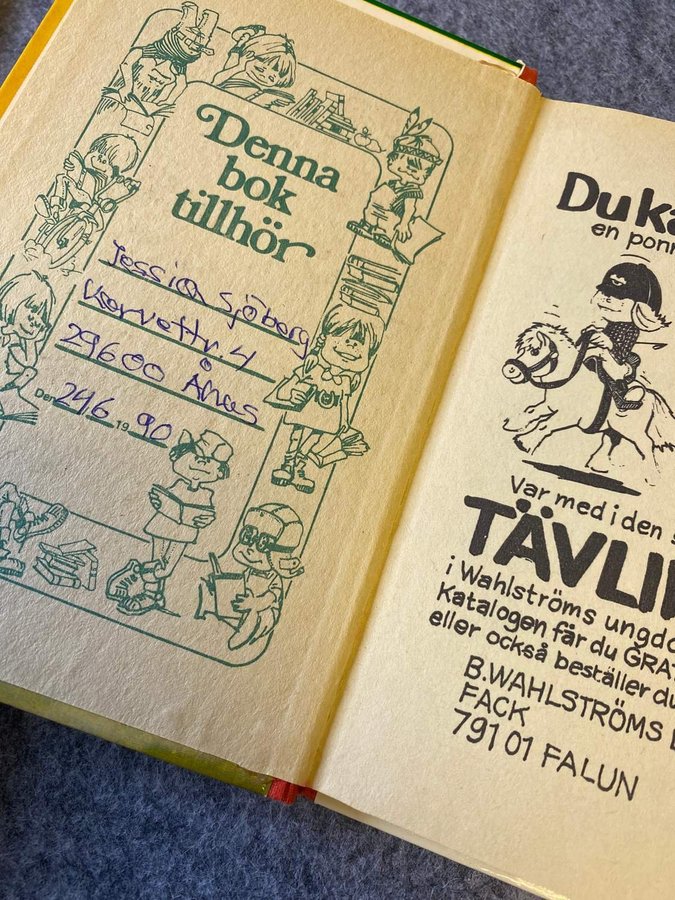 Denna
bok
tillhör
Jessica Sjöberg
Korvettv. 4
29600 Åhus
Den 24 6. 19 90
Du ka
en ponn
Var med i den s
TÄVLIN
i Wahlströms ungdo
katalogen får du GRAT
eller också beställer du
B.WAHLSTRÖMS
FACK
791 01 FALUN